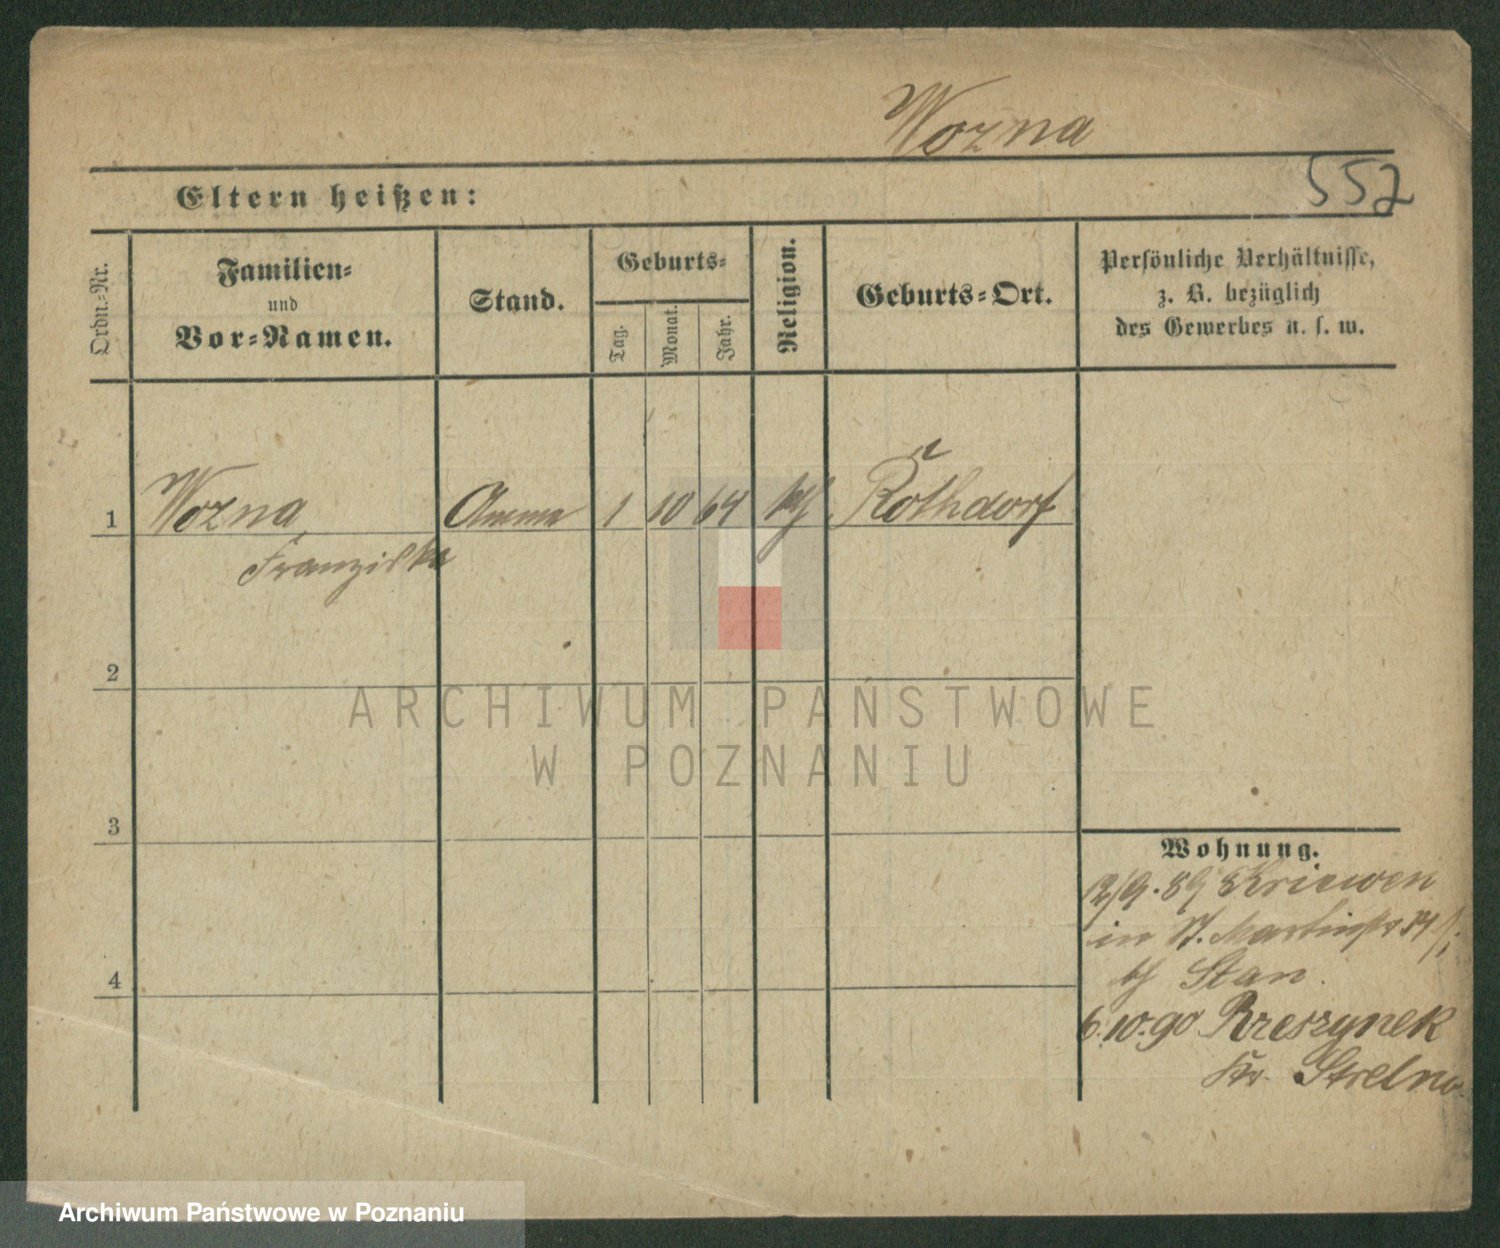 Wozna
552
Eltern heißen:
Ordn.-Nr.
Familien-
und
Vor-Namen.
Stand.
Geburts-
Tag.
Monat.
Jahr.
Religion.
Geburts-Ort.
Persönliche Verhältnisse,
z. B. bezüglich
des Gewerbes u. s. w.
1 Wozna Amme 1 10 64 kth Rothdorf
Franziska
2
3
4
Wohnung.
12/9.89 Kriewen
in St. Martinstr 34
bei Stan.
6.10.90 Rzeszynek
Kr. Strelno
ARCHIWUM PAŃSTWOWE
W POZNANIU
Archiwum Państwowe w Poznaniu